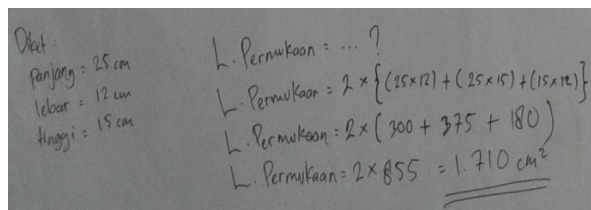 Diket :
Panjang = 25 cm
lebar = 12 cm
tinggi = 15 cm
L. Permukaan = ... ?
L. Permukaan = 2 × {(25×12) + (25×15) + (15×12)}
L. Permukaan = 2 × (300 + 375 + 180)
L. Permukaan = 2 × 855 = 1.710 cm²